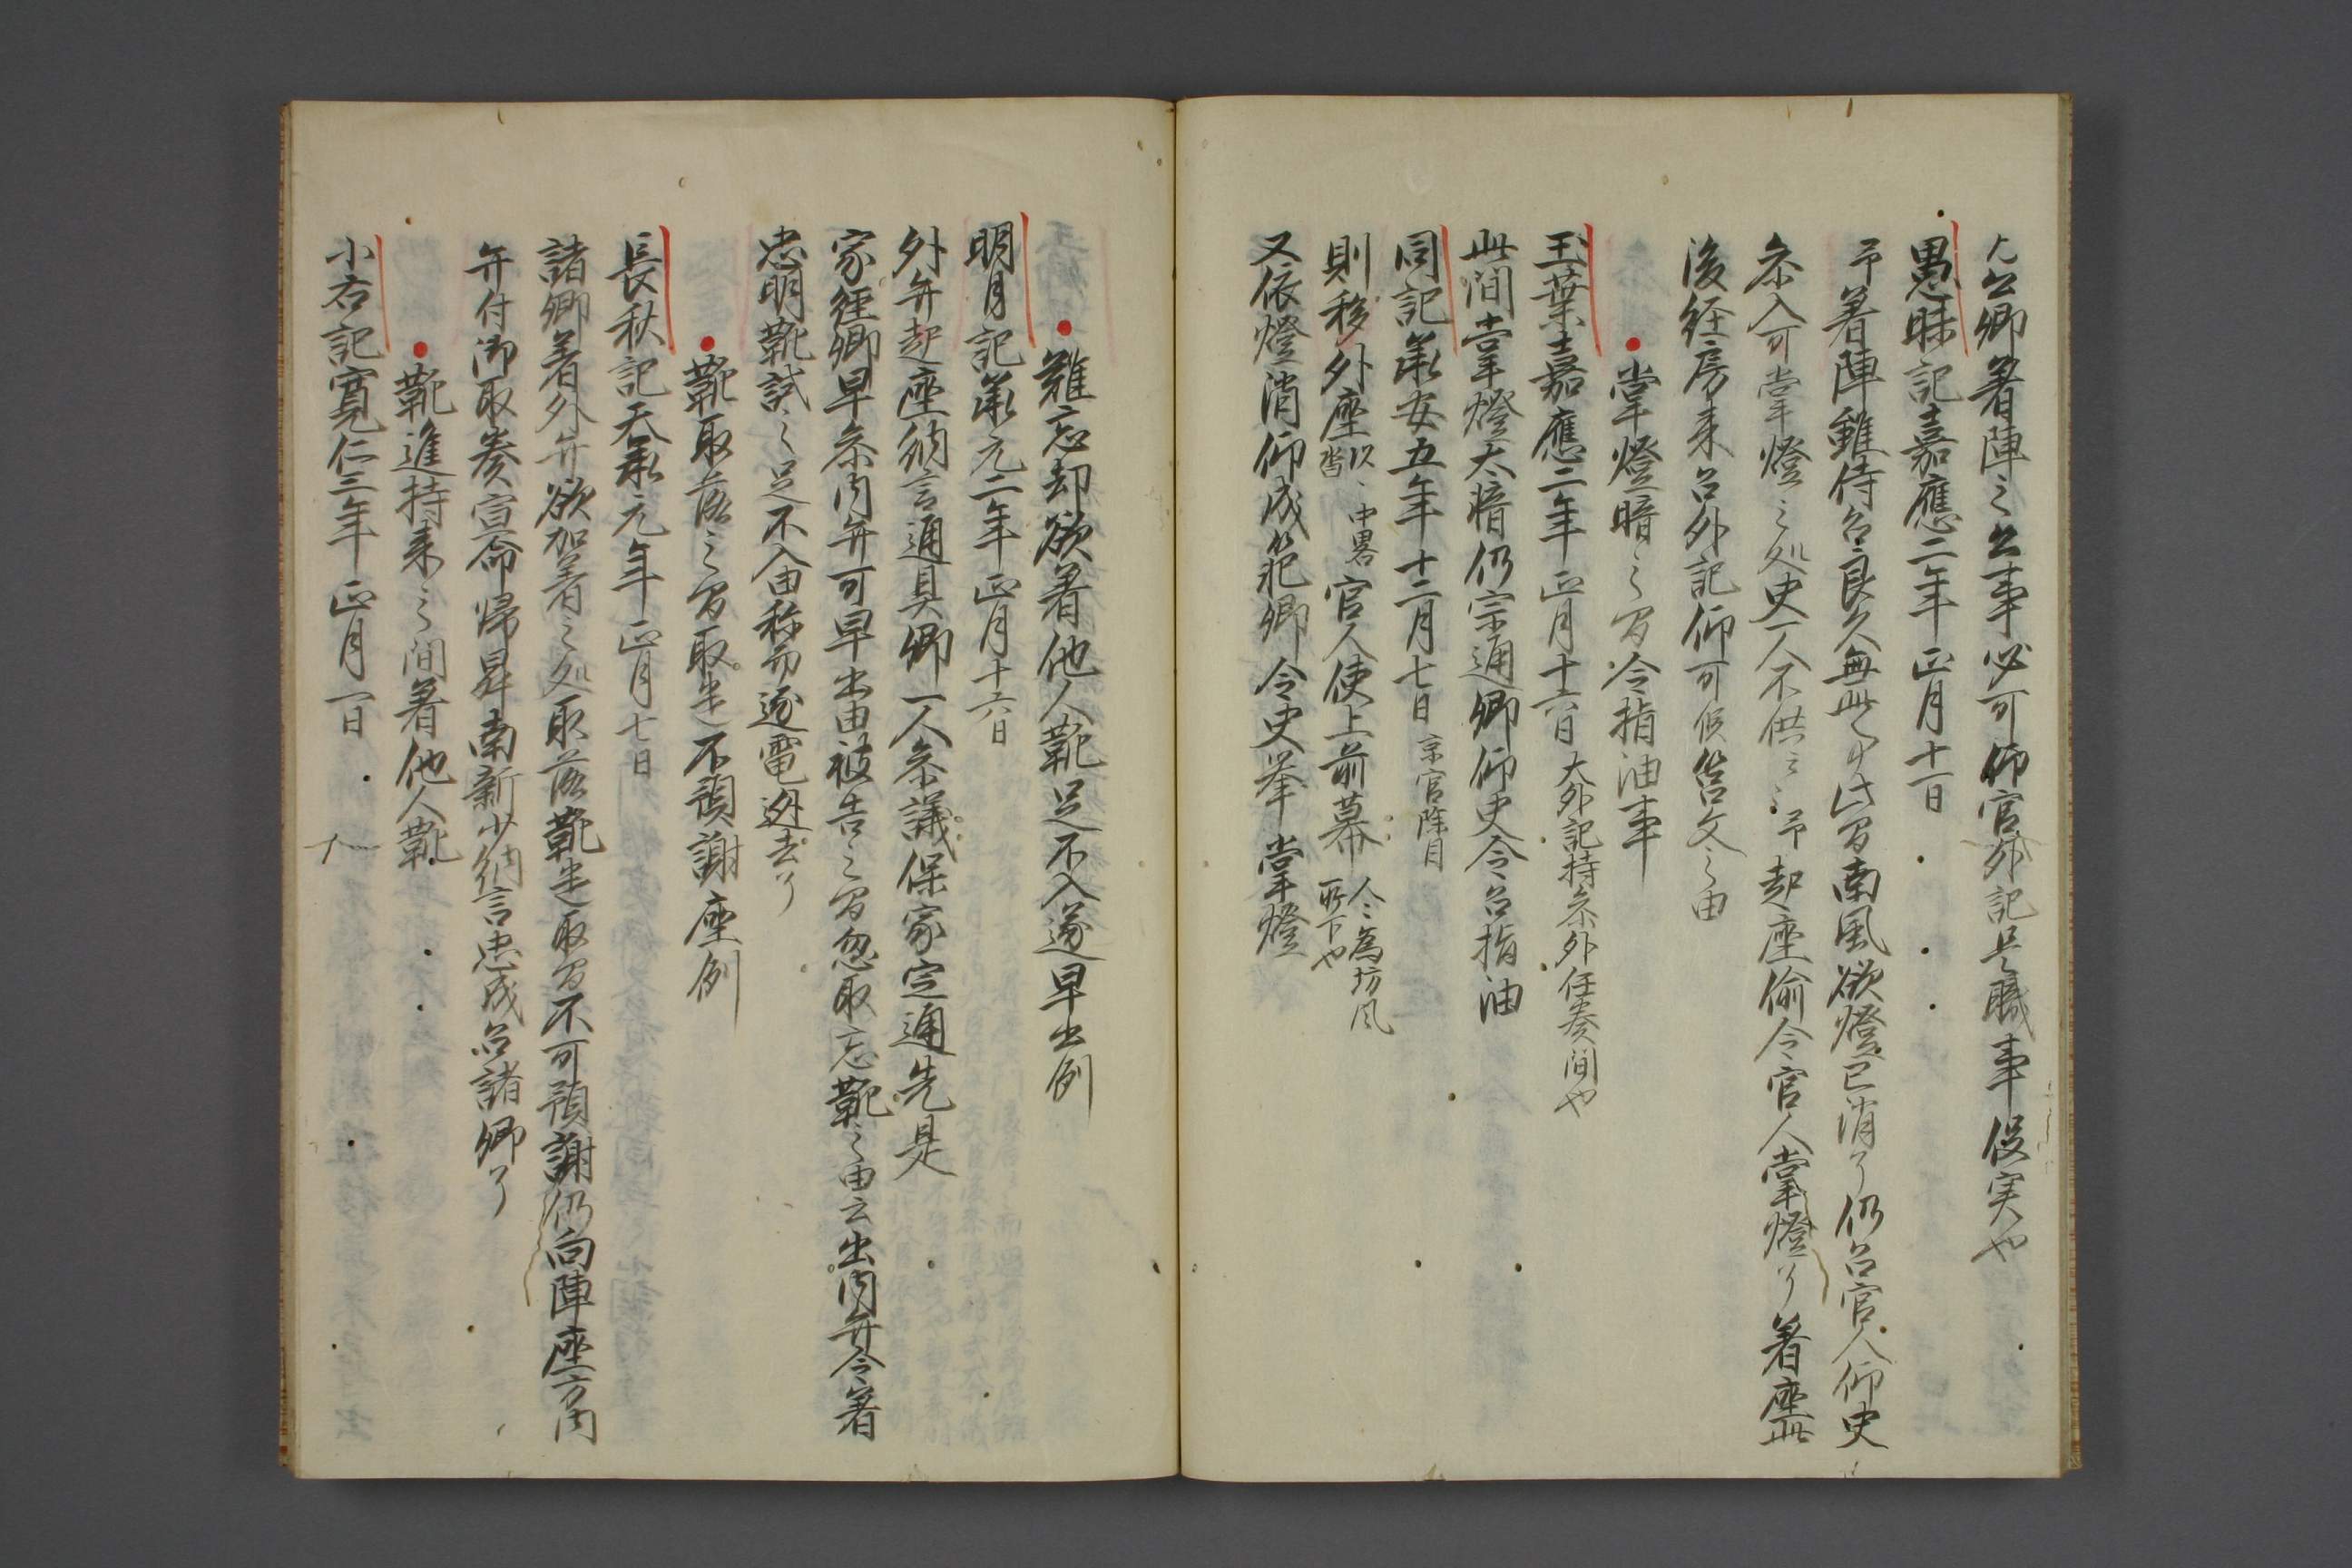 凡公卿着陣之公事必可仰官外記是職事役実也
愚昧記嘉應二年正月十一日
予着陣雖侍召良久無此事此間南風欲燈已消了仍召官人仰史
参入可掌燈之処史一人不供之予起座偷令官人掌燈了着座此
後経房来召外記仰可候筥文之由
掌燈暗之間令指油事
玉葉嘉應二年正月十六日大外記持参外任奏間也
此間掌燈太暗仍宗通卿仰史令召指油
同記承安五年十二月七日京官除目
則移外座中畧官人使上前幕令為坊風所下也
又依燈消仰成範卿令史挙掌燈
難忘却欲着他人靴足不入遂早出例
明月記承元二年正月十六日
外弁起座納言通具卿一人参議保家定通先是
家経卿早参内弁可早出由被告之間忽取忘靴之由云出内弁令着
忠明靴試之足不入由称而逐電退去了
靴取落之間取失不預謝座例
長秋記天承元年正月七日
諸卿着外弁欲加着之処取落靴失取間不可預謝仍向陣座方内
弁付御取奏宣命帰昇南新少納言忠成召諸卿了
靴進持来之間着他人靴
小右記寛仁三年正月一日